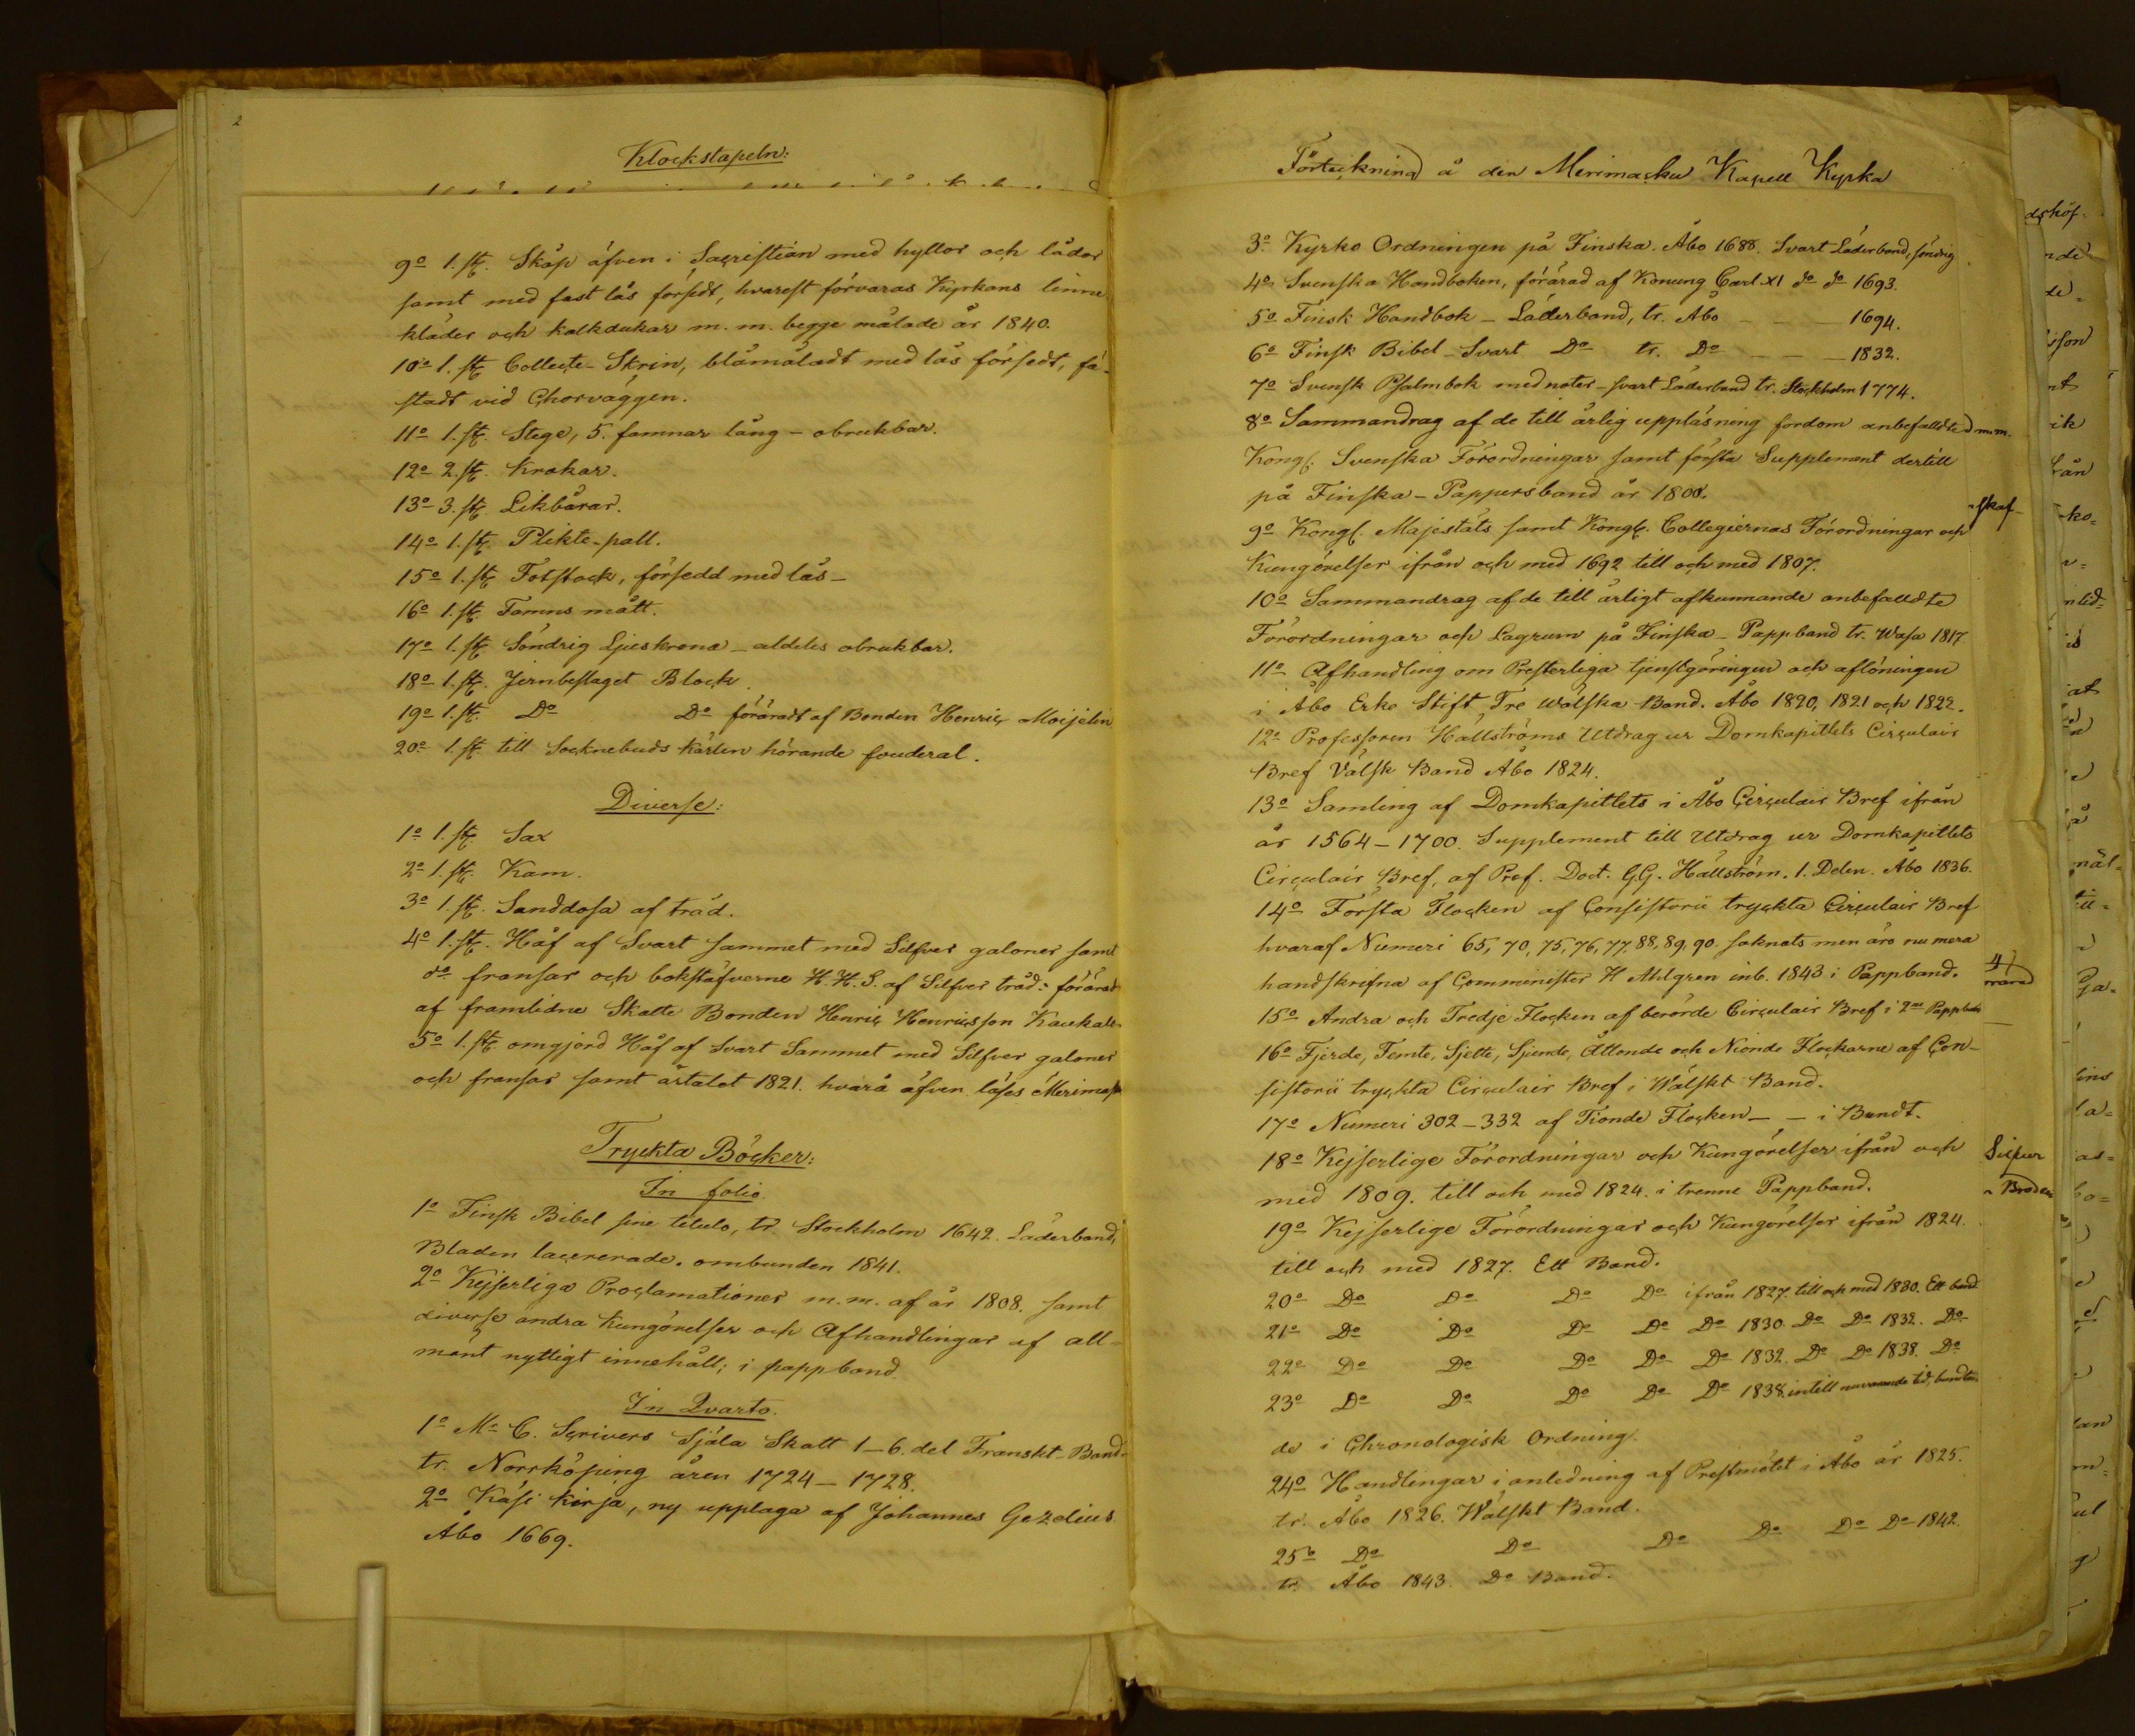 2
Klockstapeln:
9o 1. st. Skåp äfven i Sacristian med hyllor och lådor
samt med fast lås försedt, hvarest förvaras Kyrkans linne
kläder och kalkdukar m. m. begge målade år 1840.
10o 1. st. Collecte-Skrin, blåmåladt med lås försedt, fä-
stadt vid Chorväggen.
11o 1. st. Stege, 5. famnar lång - obrukbar.
12o 2. st. Krokar.
13o 3. st. Likbårar.
14o 1. st. Plikte-pall.
15o 1. st. Fotstock, försedd med lås-
16o 1. st. Famns mått.
17o 1. st. Söndrig Ljuskrona - aldeles obrukbar.
18o 1. st. Jernbeslaget Block.
19o 1. st. Do Do föräradt af Bonden Henric Moijelin
20o 1. st. till Socknebuds kärlen hörande fouderal.
Diverse:
1o 1. st. Sax
2o 1. st. Kam.
3o 1. st. Sanddosa af träd.
4o 1. st. Håf af Svart sammet med Silfver galoner samt
do fransar och bokstäfverne H. H. S. af Silfver tråd: förärad
af framlidne Skatte Bonden Henric Henricsson
5o 1. st. omgjord Håf af Svart Sammet med Silfver galoner
och fransar samt årtalet 1821. hvarå äfven läses Merimask
Tryckta Böcker:
In folio.
1o Finsk Bibel sine titulo, tr. Stockholm 1642. Läderband,
Bladen lacererade. ombunden 1841.
2o Kejserliga Proclamationer m. m. af år 1808. samt
diverse andra Kungörelser och Afhandlingar af all-
mänt nyttigt innehåll; i pappband.
In Qvarto.
1o Mr C. Scrivers Själa Skatt 1-6. del Franskt-Band.
tr. Norrköping åren 1724-1728.
2o Käsi kirja, ny upplaga af Johannes Gezelius
Åbo 1669.
Förteckning å den Merimasku Kapell Kyrka
3o Kyrko Ordningen på Finska. Åbo 1688. Svart Läderband, söndrig
4o Svenska Handboken, förärad af Konung Carl XI do do 1693.
5o Finsk Handbok - Läderband, tr. Åbo - - 1694.
6o Finsk Bibel - Svart Do tr. Do - - 1832.
7o Svensk Psalmbok med noter - svart Läderband tr. Stockholm 1774.
8o Sammandrag af de till årlig uppläsning fordom anbefalldte
Kongl. Svenska Förordningar samt första Supplement dertill
på Finska - Pappersband år 1808.
9o Kongl. Majestäts samt Kongl. Collegiernas Förordningar och
Kungörelser ifrån och med 1692 till och med 1807.
10o Sammandrag af de till årligt afkunnande anbefalldte
Förordningar och Lagrum på Finska - Pappband tr. Wasa 1817
11o Afhandling om Presterliga tjenstgöringen och aflöningen
i Åbo Erke Stift Tre Wälska Band. Åbo 1820, 1821 och 1822.
12o Professoren Hällströms Utdrag ur Domkapitlets Circulair
Bref Välsk Band Åbo 1824.
13o Samling af Domkapitlets i Åbo Circulair Bref ifrån
år 1564-1700. Supplement till Utdrag ur Domkapitlets
Circulair Bref, af Prof. Doct. G.G. Hällström. 1. Delen. Åbo 1836.
14o Första Flocken af Consistorii tryckta Circulair Bref
hvaraf Numeri 65, 70, 75, 76, 77, 88, 89, 90. saknats men äro numera
handskrifna af Comminister H Ahlgren inb. 1843 i Pappband.
15o Andra och Tredje Flocken af berörde Circulair Bref i 2ne Pappband
16o Fjerde, Femte, Sjette, Sjunde, Åttonde och Nionde Flockarne af Con-
sistorii tryckta Circulair Bref i Wälskt Band.
17o Numeri 302-332 af Tionde Flocken - - i Bundt.
18o Kejserlige Förordningar och Kungörelser ifrån och
med 1809. till och med 1824. i trenne Pappband.
19o Kejserlige Förordningar och Kungörelser ifrån 1824.
till och med 1827. Ett Band.
20o Do Do Do Do ifrån 1827. till och med 1830. Ett band
21o Do Do Do Do Do 1830. Do Do 1832. Do
22o Do Do Do Do Do 1832. Do Do 1838. Do
23o Do Do Do Do Do 1838. intill nuvarande tid,
de i Chronologisk Ordning.
24o Handlingar i anledning af Prestmötet i Åbo år 1825.
tr. Åbo 1826. Wälskt Band.
25o Do Do Do Do Do Do 1842.
tr. Åbo 1843. Do Band.